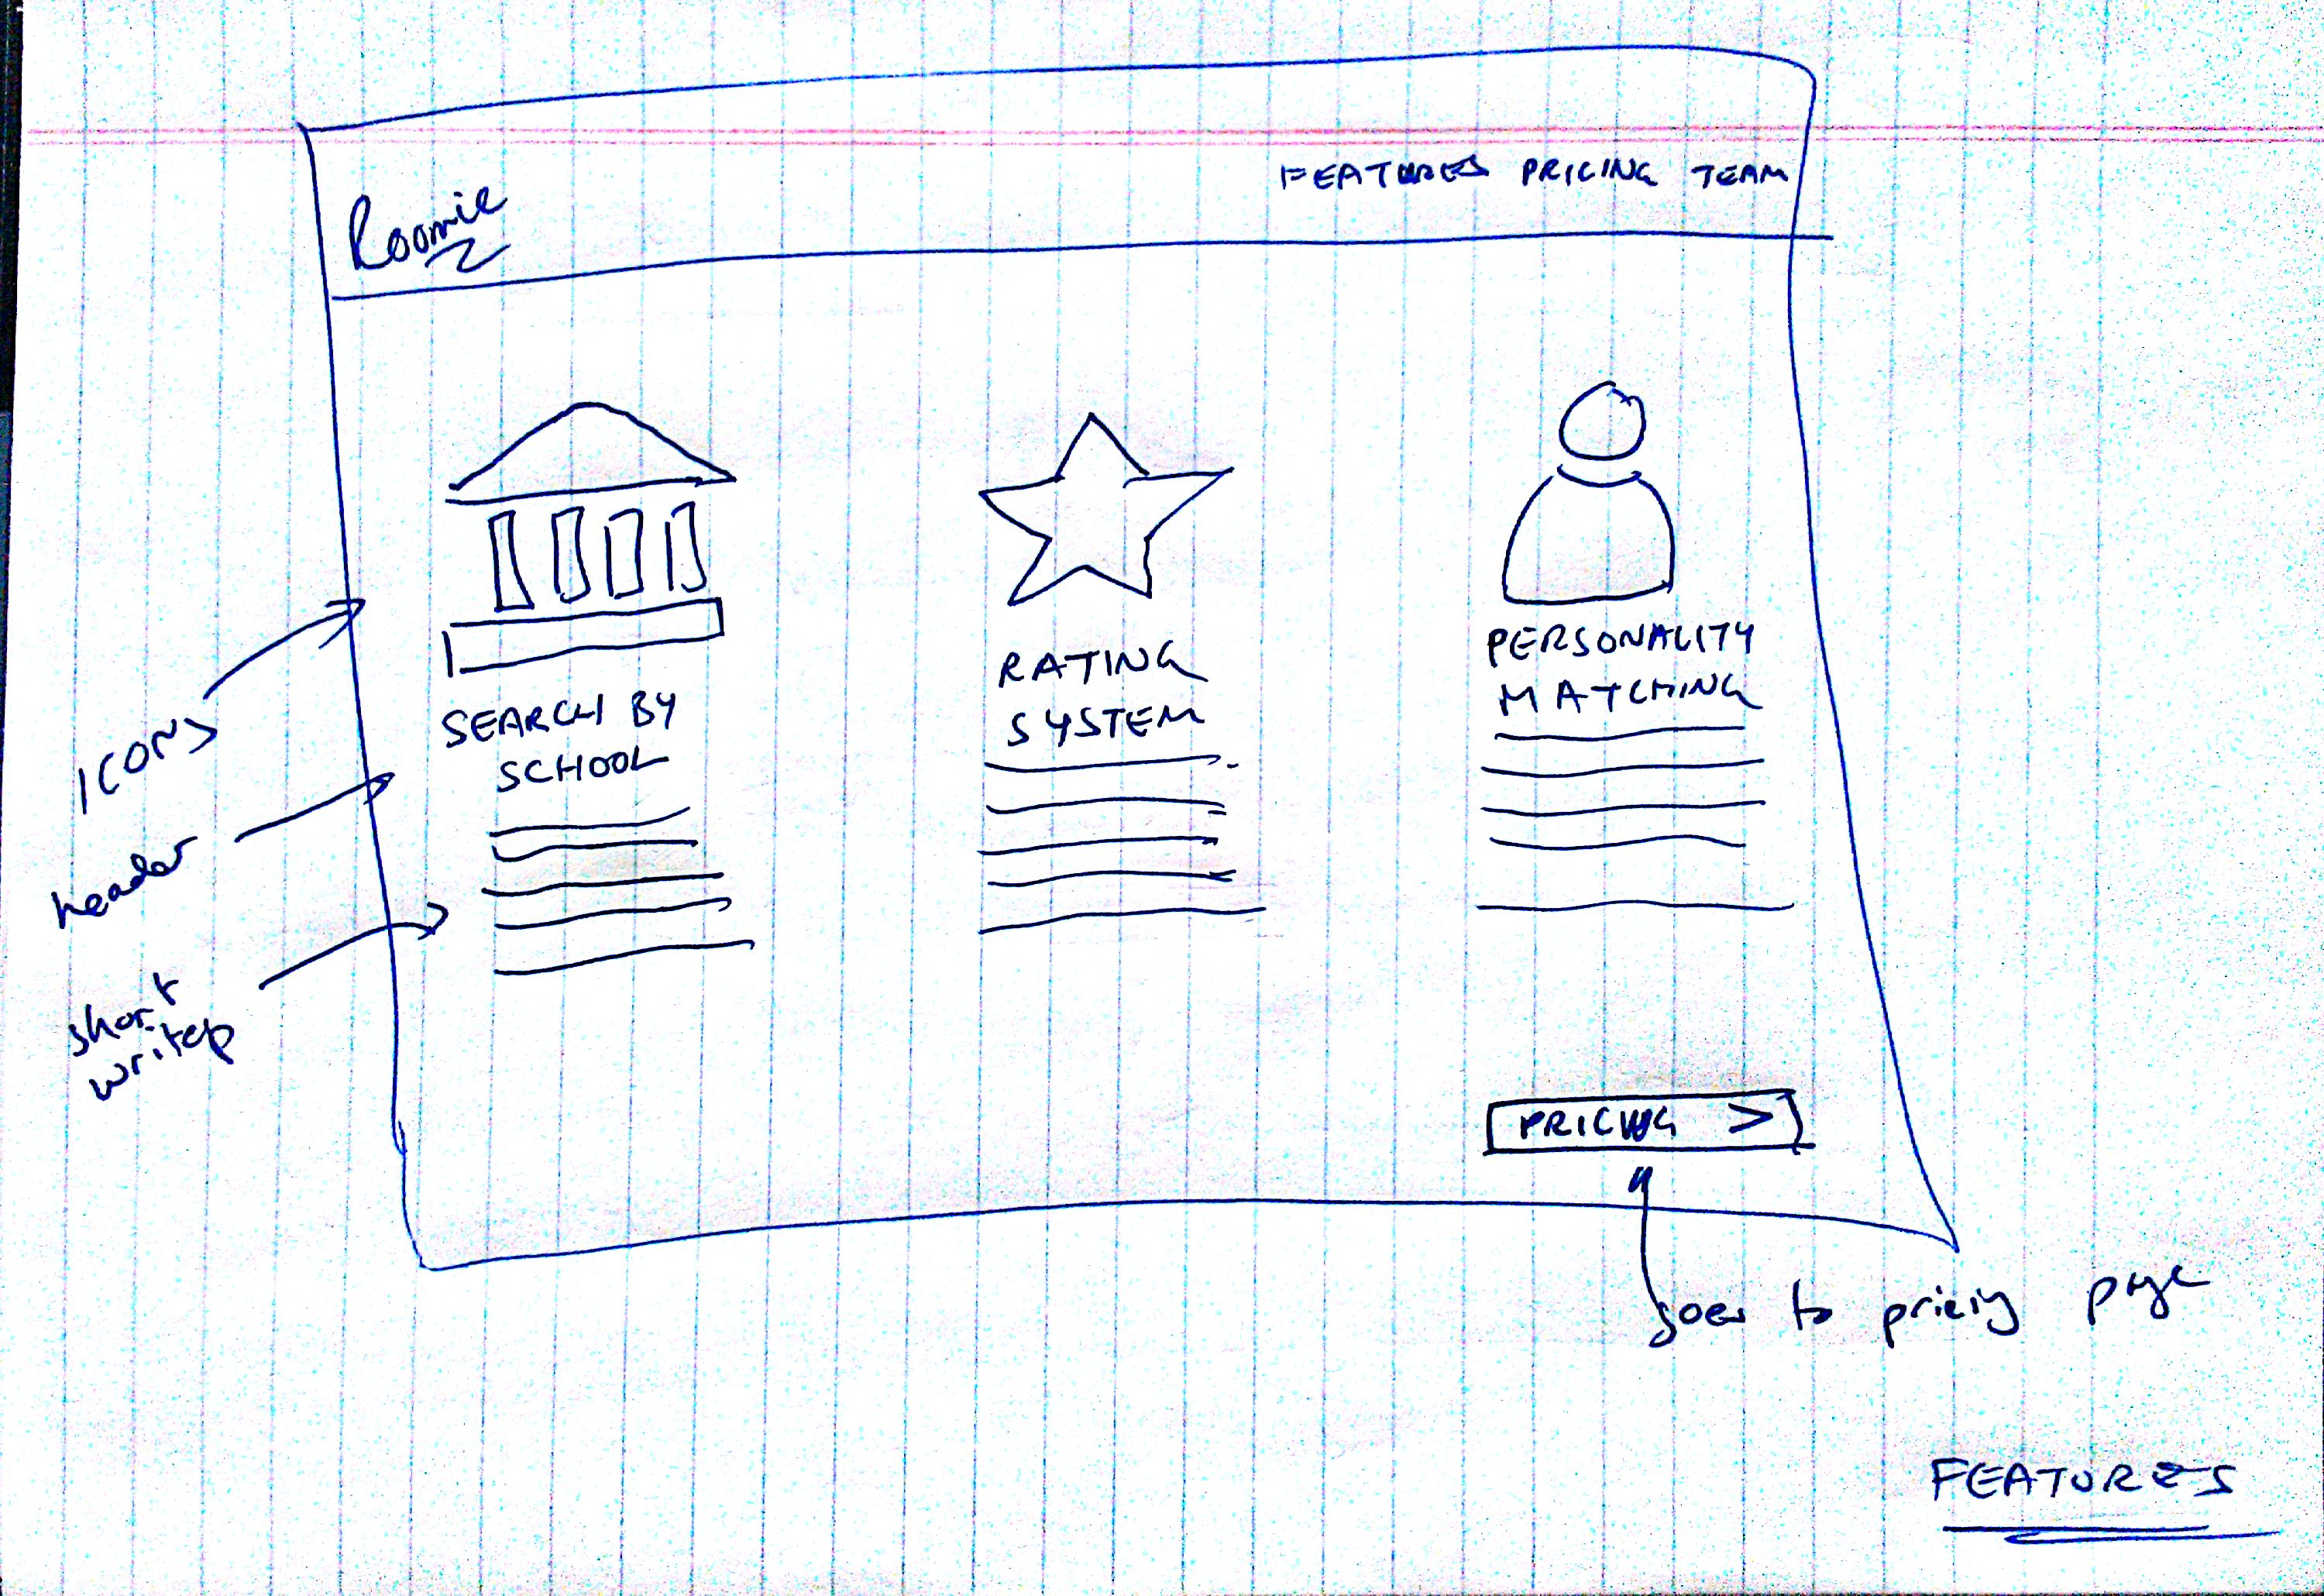 Roomie
FEATURES PRICING TEAM
SEARCH BY
SCHOOL
RATING
SYSTEM
PERSONALITY
MATCHING
ICONS
header
short
writep
PRICING >
goes to pricing page
FEATURES